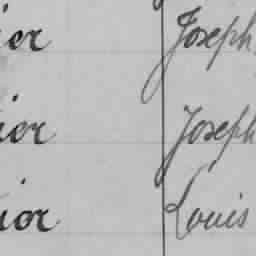 ier Joseph
ior Joseph
ior Louis